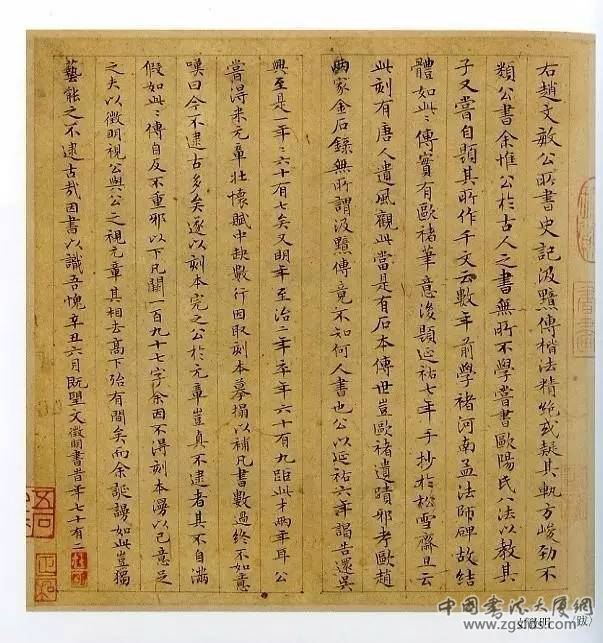 右趙文敏公所書史記汲黯傳楷法精絕或疑其軌方峻勁不
類公書余惟公於古人之書無所不學嘗書歐陽氏八法以教其
子又嘗自題其所作千文云數年前學褚河南孟法師碑故結
體如此此傳實有歐褚筆意後題延祐七年手抄於松雪齋且云
此刻有唐人遺風觀此當是有石本傳世豈歐褚遺蹟邪考歐趙
兩家金石錄無所謂汲黯傳竟不知何人書也公以延祐六年謁告還吳
興至是一年年六十有七矣又明年至治二年卒年六十有九距此才兩年耳公
嘗得米元章壯懷賦中缺數行因取刻本摹搨以補凡書數過終不如意
嘆曰今不逮古多矣遂以刻本完之公於元章豈真不逮者其不自滿
假如此此傳自反不重邪以下凡闕一百九十七字余因不得刻本漫以己意足
之夫以徵明視公與公之視元章其相去高下殆有間矣而余誕謾如此豈獨
藝能之不逮古哉因書以識吾愧辛丑六月既望文徵明書昔年七十有二
中國書法大廈網
www.zgsfds.com
(跋)